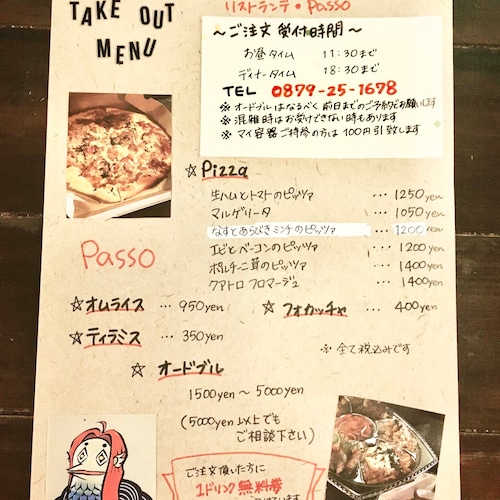 TAKE OUT
MENU
リストランテ・Passo
～ご注文 受付時間～
お昼タイム 11:30まで
ディナータイム 18:30まで
TEL 0879-25-1678
※オードブルはなるべく前日までのご予約でお願います
※混雑時はお受けできない時もあります
※マイ容器ご持参の方は100円引致します
☆Pizza
生ハムとトマトのピッツァ … 1250yen
マルゲリータ … 1050yen
なすとあらびきミンチのピッツァ … 1200yen
エビとベーコンのピッツァ … 1200yen
ポルチーニ茸のピッツァ … 1400yen
クアトロフロマージュ … 1400yen
Passo
☆オムライス … 950yen
☆フォカッチャ … 400yen
☆ティラミス … 350yen
※全て税込みです
☆オードブル
1500yen～5000yen
(5000yen以上でも
ご相談下さい)
ご注文頂いた方に
1ドリンク無料券